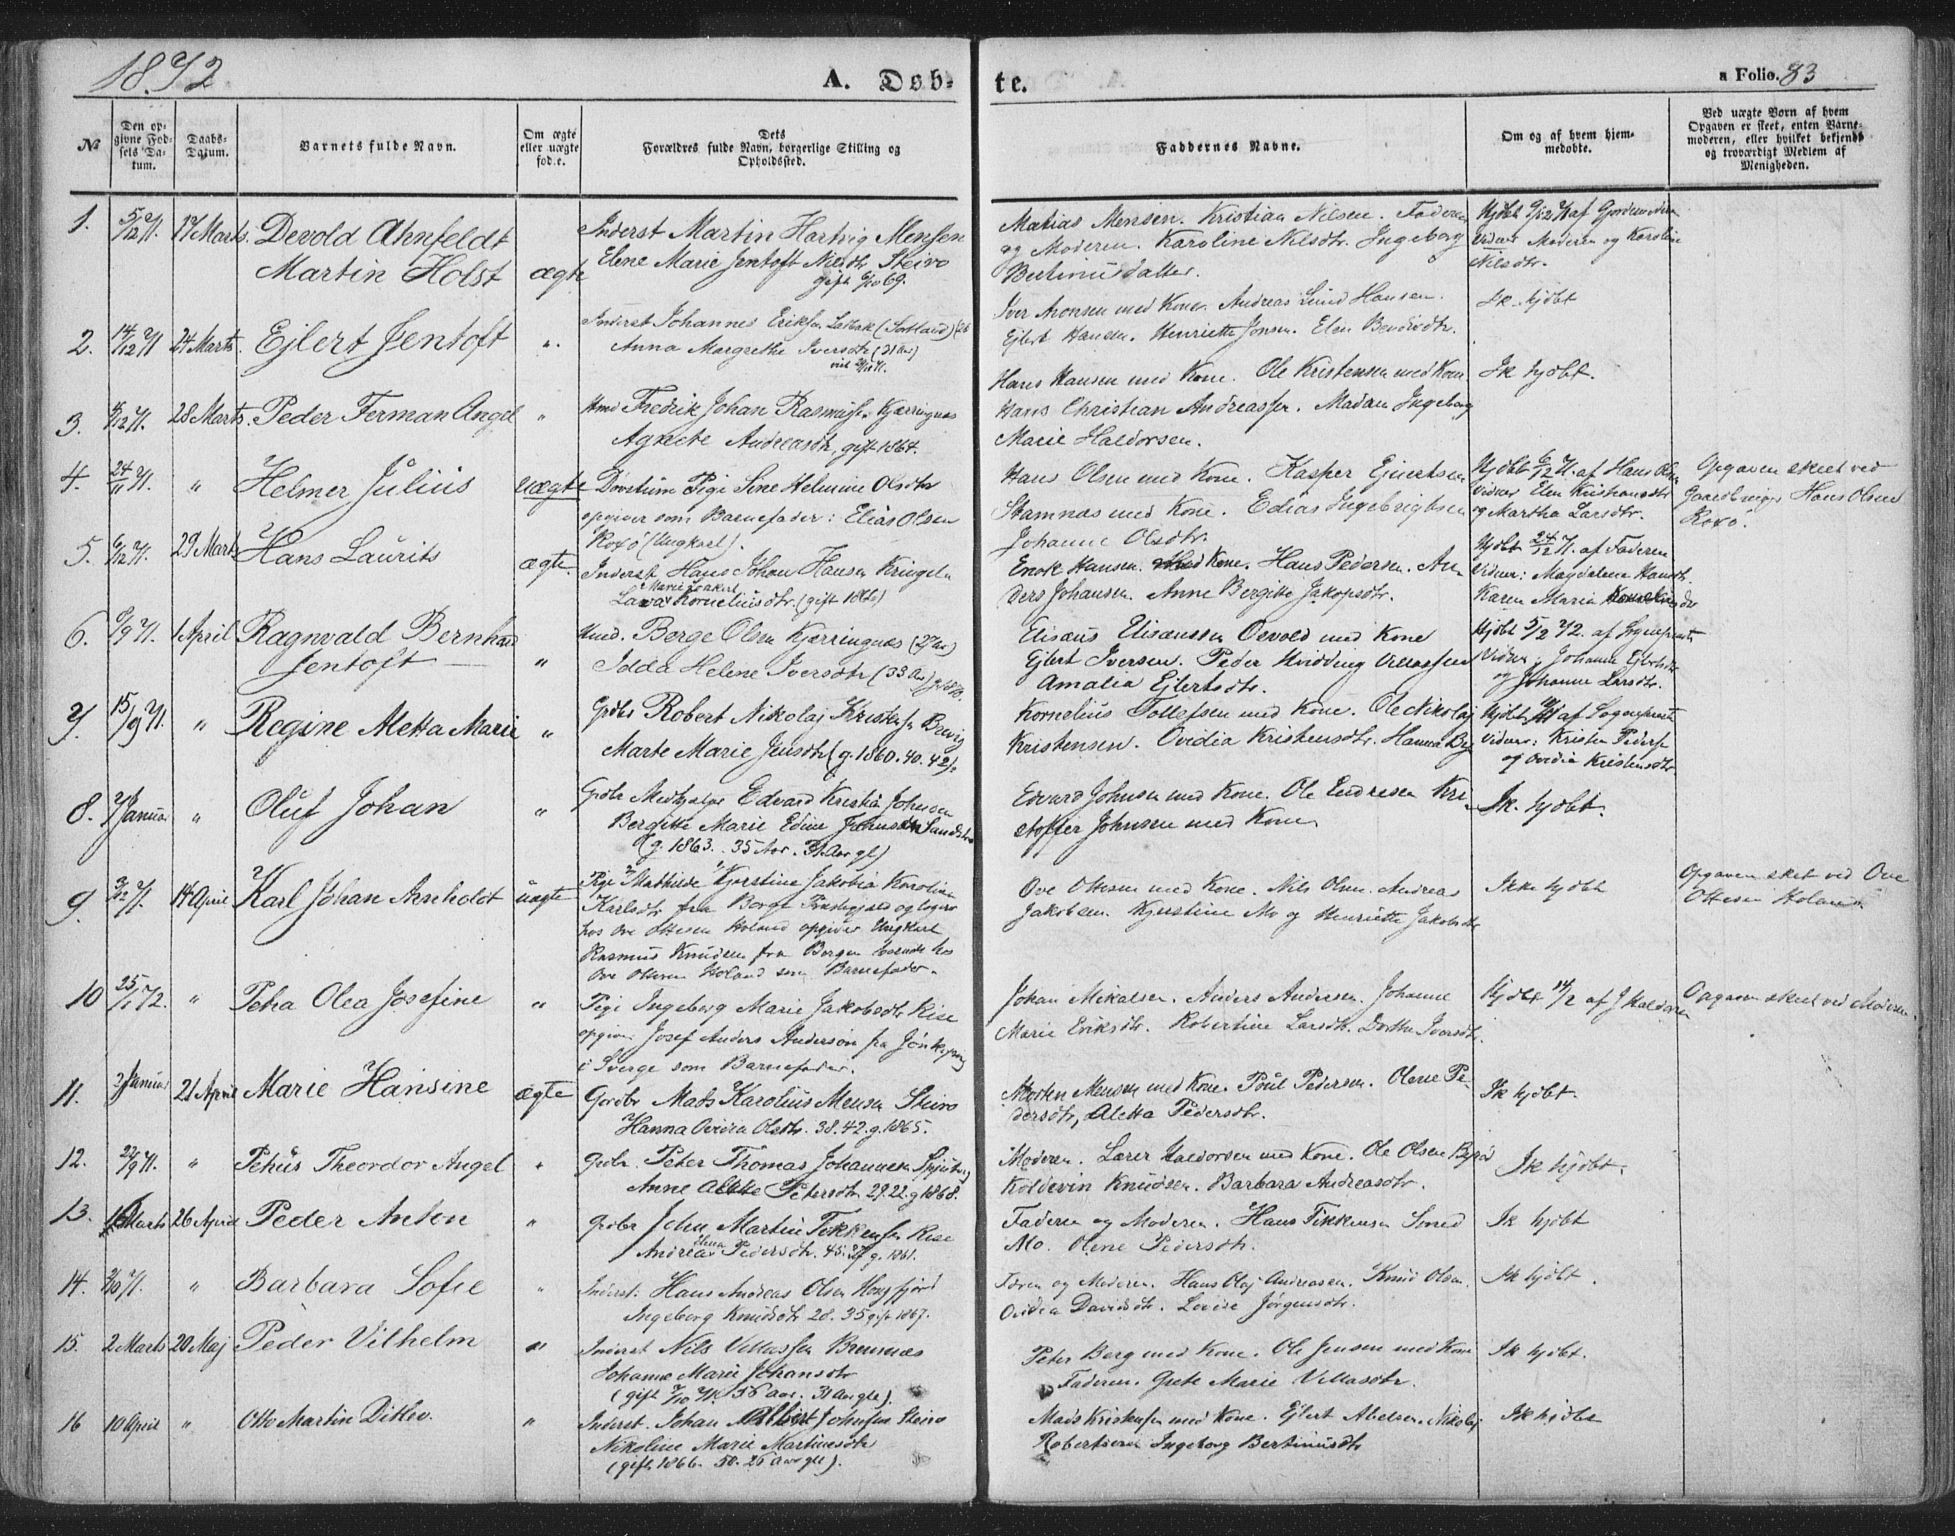 1872
A. Døb-
te.
a Folio. 83
№
Den op-
givne Fød-
sels Da-
tum.
Daabs-
Datum.
Barnets fulde Navn.
Om ægte
eller uægte
fød.e.
Dets
Forældres fulde Navn, borgerlige Stilling og
Opholdssted.
Faddernes Navne.
Om og af hvem hjem-
medøbte.
Ved uægte Børn af hvem
Opgaven er skeet, enten Barne-
moderen, eller hvilket bekjendt
og troværdigt Medlem af
Menigheden.
1. 5/12 71. 17 Marts. Devold Ahnfeldt
Martin Holst ægte
Inderst Martin Hartvig Mensen
Elene Marie Jentoft Nilsdtr Steiro
gift 6/10 69.
Matias Mensen. Kristian Nilsen. Faderen
og Moderen. Karoline Nilsdtr. Ingeborg
Bertinusdatter.
Vidner Moderen og Karoline
Nilsdtr.
2. 14/12 71 24 Marts. Ejlert Jentoft ".
Inderst Johannes Eriksen (Sortland)
Anna Margrethe Iversdtr (31 Aar)
Iver Aronsen med Kone. Andreas Lund Hansen.
Ejlert Hansen. Henriette Jonsen. Elen Bendixdtr.
Ik hjdbt
3. 28 Marts. Peder Ferman Angel "
Hmd Fredrik Johan Rasmuss. Kjærringnes
Agnete Andreasdtr, gift 1864.
Hans Hansen med Kone. Ole Kristensen med Kone
Hans Christian Andreassen. Madam Ingeborg
Marie Haldorsen.
Ik hjdbt.
4. 24/11 71. " Helmer Julius uægte
Pige Sine Helmine Olsdtr
opgiver som Barnefader: Elias Olsen
Roxø (Ungkarl).
Hans Olsen med Kone. Kasper Ejvertsen
Stamnæs med Kone. Edias Ingebrigtsen
Johanne Olsdtr.
Hjdbt 6/12 71. af Hans Olsen
Vidner Elen Kristiansdtr
og Martha Larsdtr.
Opgaven skeet ved
Gaardbruger Hans Olsen
Roxø.
5. 6/12 71. 29 Marts Hans Laurits ægte.
Inderst Hans Johan Hansen Kringeln
Korneliusdtr. (gift 1866)
Enok Hansen. med Kone. Hans Pedersen. An-
ders Johansen. Anne Bergitte Jakopsdtr.
Hjdbt 24/12 71. af Faderen
Vidner: Magdalena Hansdtr.
Karen Maria
6. 9/9 71. 1 April Ragnvald Bernhard
Jentoft "
Hmd. Berge Olsen Kjærringnes (27 Aar)
Idda Helene Iversdtr (33 Aar)
Elisæus Elisæussen Osvold med Kone
Ejlert Iversen. Peder Hvidding Villassen
Amalia Ejlertsdtr.
Hjdbt 5/2 72. af Sognepræsten
Vidner: Johanna Ejlertsdtr
og Johanne Larsdtr.
7. 15/9 71. " Regine Aletta Marie "
Grdbr Robert Nikolaj Kristensen Brevig
Marte Marie Jensdtr (g. 1860. 40. 42).
Kornelius Tollefsen med Kone. Ole Nikolaj
Kristensen. Ovidia Kristensdtr. Hanna By
af Sognepræsten
Vidner: Kristen Peders.
og Ovidia Kristensdtr.
8. 7 Januar " Oluf Johan "
Grdbr Medhjælper Edvard Kristian Johnsen
Bergitte Marie Edine
(g. 1863. 35 Aar. 31 Aar gl)
Edvard Johnsen med Kone. Ole Endresen Kri-
stoffer Johnsen med Kone
Ik. hjdbt.
9. 14 April Karl Johan Arnholdt uægte
Pige Mathilde Kjerstine Jakobia Karoline
Karlsdtr fra Borge Præstegjæld og logerer
hos Ove Ottesen Holand opgiver Ungkarl
Rasmus Knudsen fra Bergen boende hos
Ove Ottesen Holand som Barnefader.
Ove Ottesen med Kone. Nils Olsen. Andreas
Jakobsen. Kjerstine Mo og Henriette Jakobsdtr
Ikke hjdbt
Opgaven skeet ved Ove
Ottesen Holand.
10 25/1 72. " Petra Olea Josefine "
Pige Ingeborg Marie Jakobsdtr Rise
opgiver Josef Anders Anderson fra Jönköping
i Sverge som Barnefader.
Johan Mikalsen. Anders Andersen. Johanne
Marie Eriksdtr. Robertine Larsdtr. Dorthe Iversdtr.
Hjdbt 14/2 af J Haldorsen
Opgaven skeet ved Moderen.
11. 2 Januar 21 April Marie Hansine ægte
Gardbr Mats Karolius Mensen Steiro
Hanna Ovidia Olsdtr. 38. 42. g. 1865.
Morten Mensen med Kone. Poul Pedersen. Olene Pe-
dersdtr, Aletta Pedersdtr.
Ik hjdbt.
12. 22/9 71. " Petrus Theordor Angel "
Grdbr. Peter Thomas Johannesen
Anne Petersdtr. 29. 22. g 1868.
Moderen. Lærer Haldorsen med Kone. Ole Olsen
Koldevin Knudsen. Barbara Andreasdtr.
Ik hjdbt.
13. Marts 26 April Peder Anton "
Grdbr John Martin Fikkensen Rise
Andrea Elena Pedersdtr. 45. 37 g. 1861.
Faderen og Moderen. Hans Fikkensen Smed
Mo. Olene Pedersdtr.
Ik hjdbt
14. " Barbara Sofie "
Inderst. Hans Andreas Olsen Hongfjord
Ingeborg Knudsdtr 28. 35 gift 1867.
Faderen og Moderen. Hans Olaj Andreasen. Knud Olsen.
Ovidia Davidsdtr. Lovise Jørgensdtr.
Ik hjdbt.
15. 2 Marts 20 Maj Peder Vilhelm "
Inderst Nils Villassen Bremnæs
Johanna Marie Johansdtr
(gift 7/10 71. 56 Aar. 31 Aar gle).
Peter Berg med Kone. Ole Jensen med Kone
Faderen. Grete Marie Villasdtr.
Ik hjdbt.
16 10 April " Otto Martin Ditlev. "
Inderst. Johan Albert Johnsen Steiro
Nikoline Marie Martinesdtr
(gift 1866. 50. 26 Aar gle).
Mads Kristensen med Kone. Ejlert Abelsen. Nikolaj
Robertsen Ingeborg Bertinusdtr
Ik hjdbt